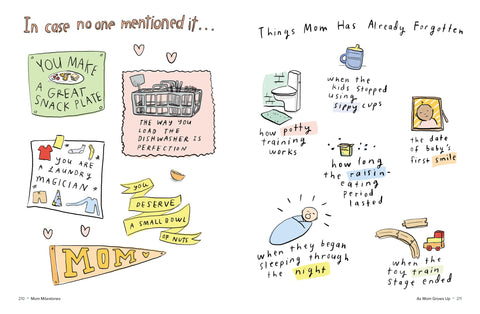 In case no one mentioned it...
YOU MAKE
A GREAT
SNACK PLATE
THE WAY YOU
LOAD THE
DISHWASHER IS
PERFECTION
YOU ARE
A LAUNDRY
MAGICIAN
YOU
DESERVE
A SMALL BOWL
OF NUTS
MOM
210 • Mom Milestones
Things Mom Has Already Forgotten
when the
kids stopped
using
sippy cups
how potty
training
works
the date
of baby's
first smile
how long
the raisin-
eating
period
lasted
when they began
sleeping through
the night
when the
toy train
stage ended
As Mom Grows Up • 211